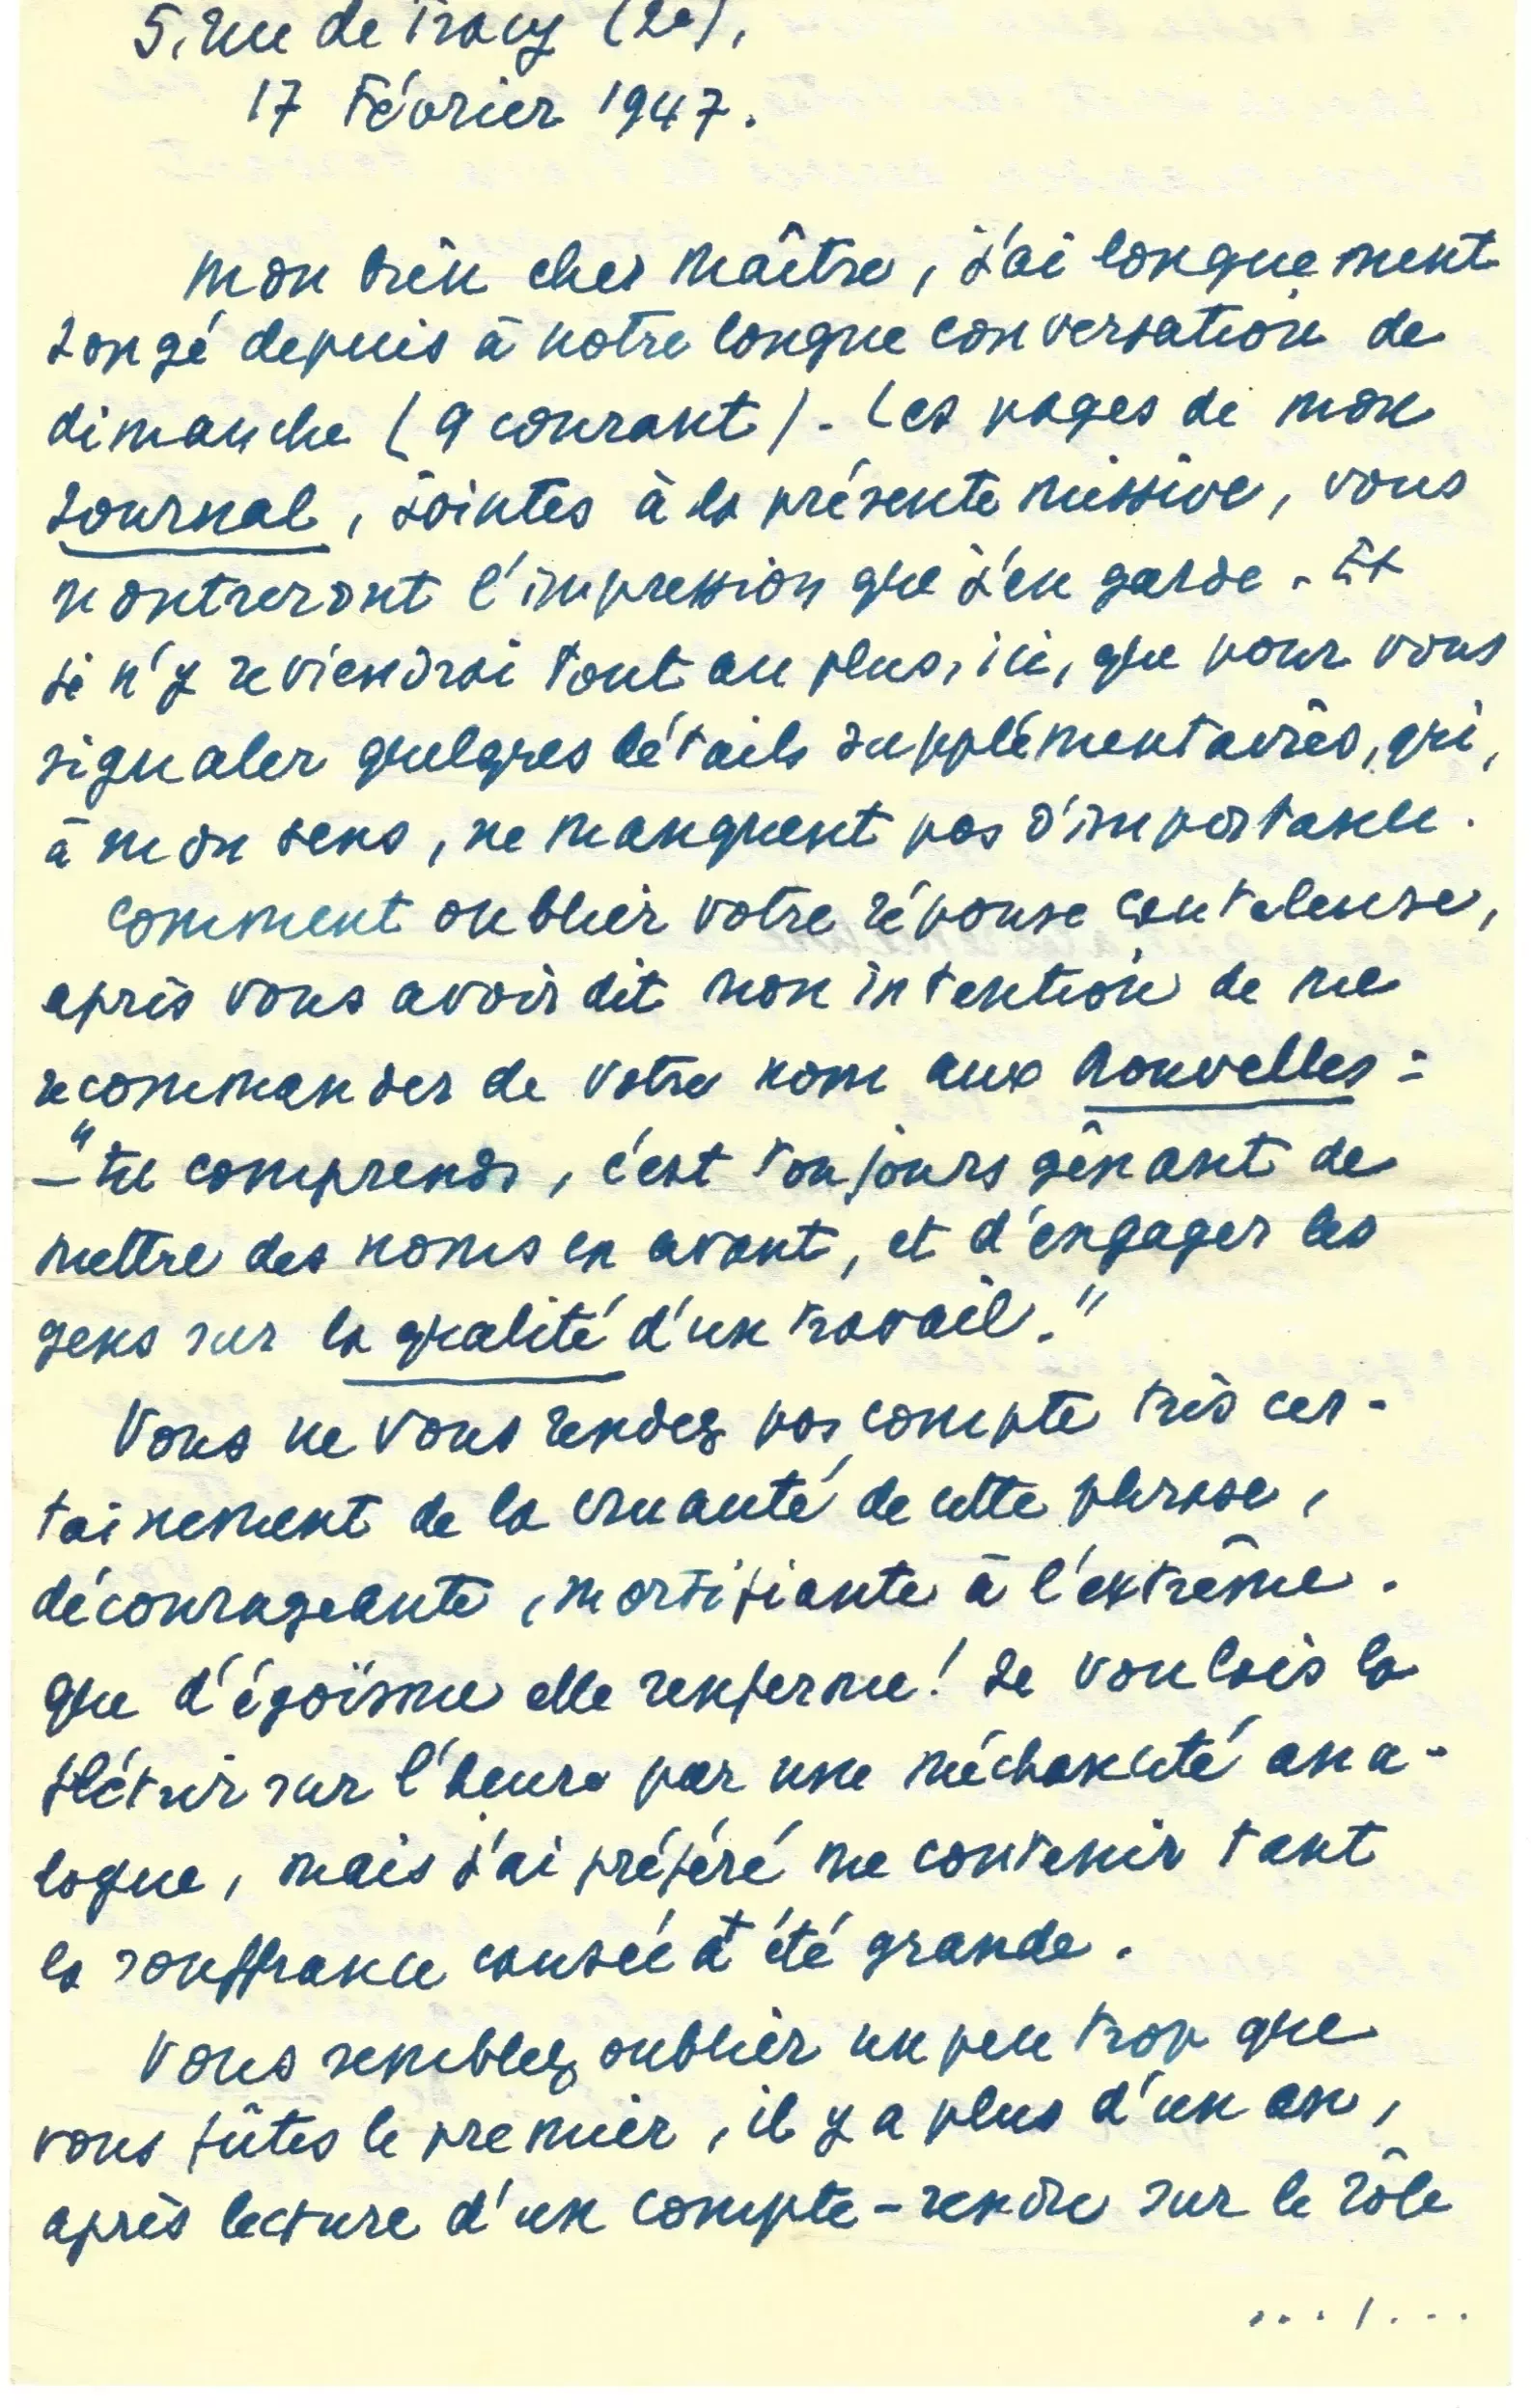 5, rue de Tracy (2e),
17 Février 1947.
Mon bien cher Maître, j'ai longuement
songé depuis à notre longue conversation de
dimanche (9 courant). Les pages de mon
Journal, jointes à la présente missive, vous
montreront l'impression que j'en garde. Et
je n'y reviendrai tout au plus, ici, que pour vous
signaler quelques détails supplémentaires, qui,
à mon sens, ne manquent pas d'importance.
Comment oublier votre réponse cauteleuse,
après vous avoir dit mon intention de me
recommander de votre nom aux Nouvelles :
— "Tu comprends, c'est toujours gênant de
mettre des noms en avant, et d'engager les
gens sur la qualité d'un travail."
Vous ne vous rendez pas compte très cer-
tainement de la cruauté de cette phrase,
décourageante, mortifiante à l'extrême.
Que d'égoïsme elle renferme ! Je voulais la
flétrir sur l'heure par une méchanceté ana-
logue, mais j'ai préféré me contenir tant
la souffrance causée a été grande.
Vous semblez oublier un peu trop que
vous fûtes le premier, il y a plus d'un an,
après lecture d'un compte-rendu sur le rôle
.../...